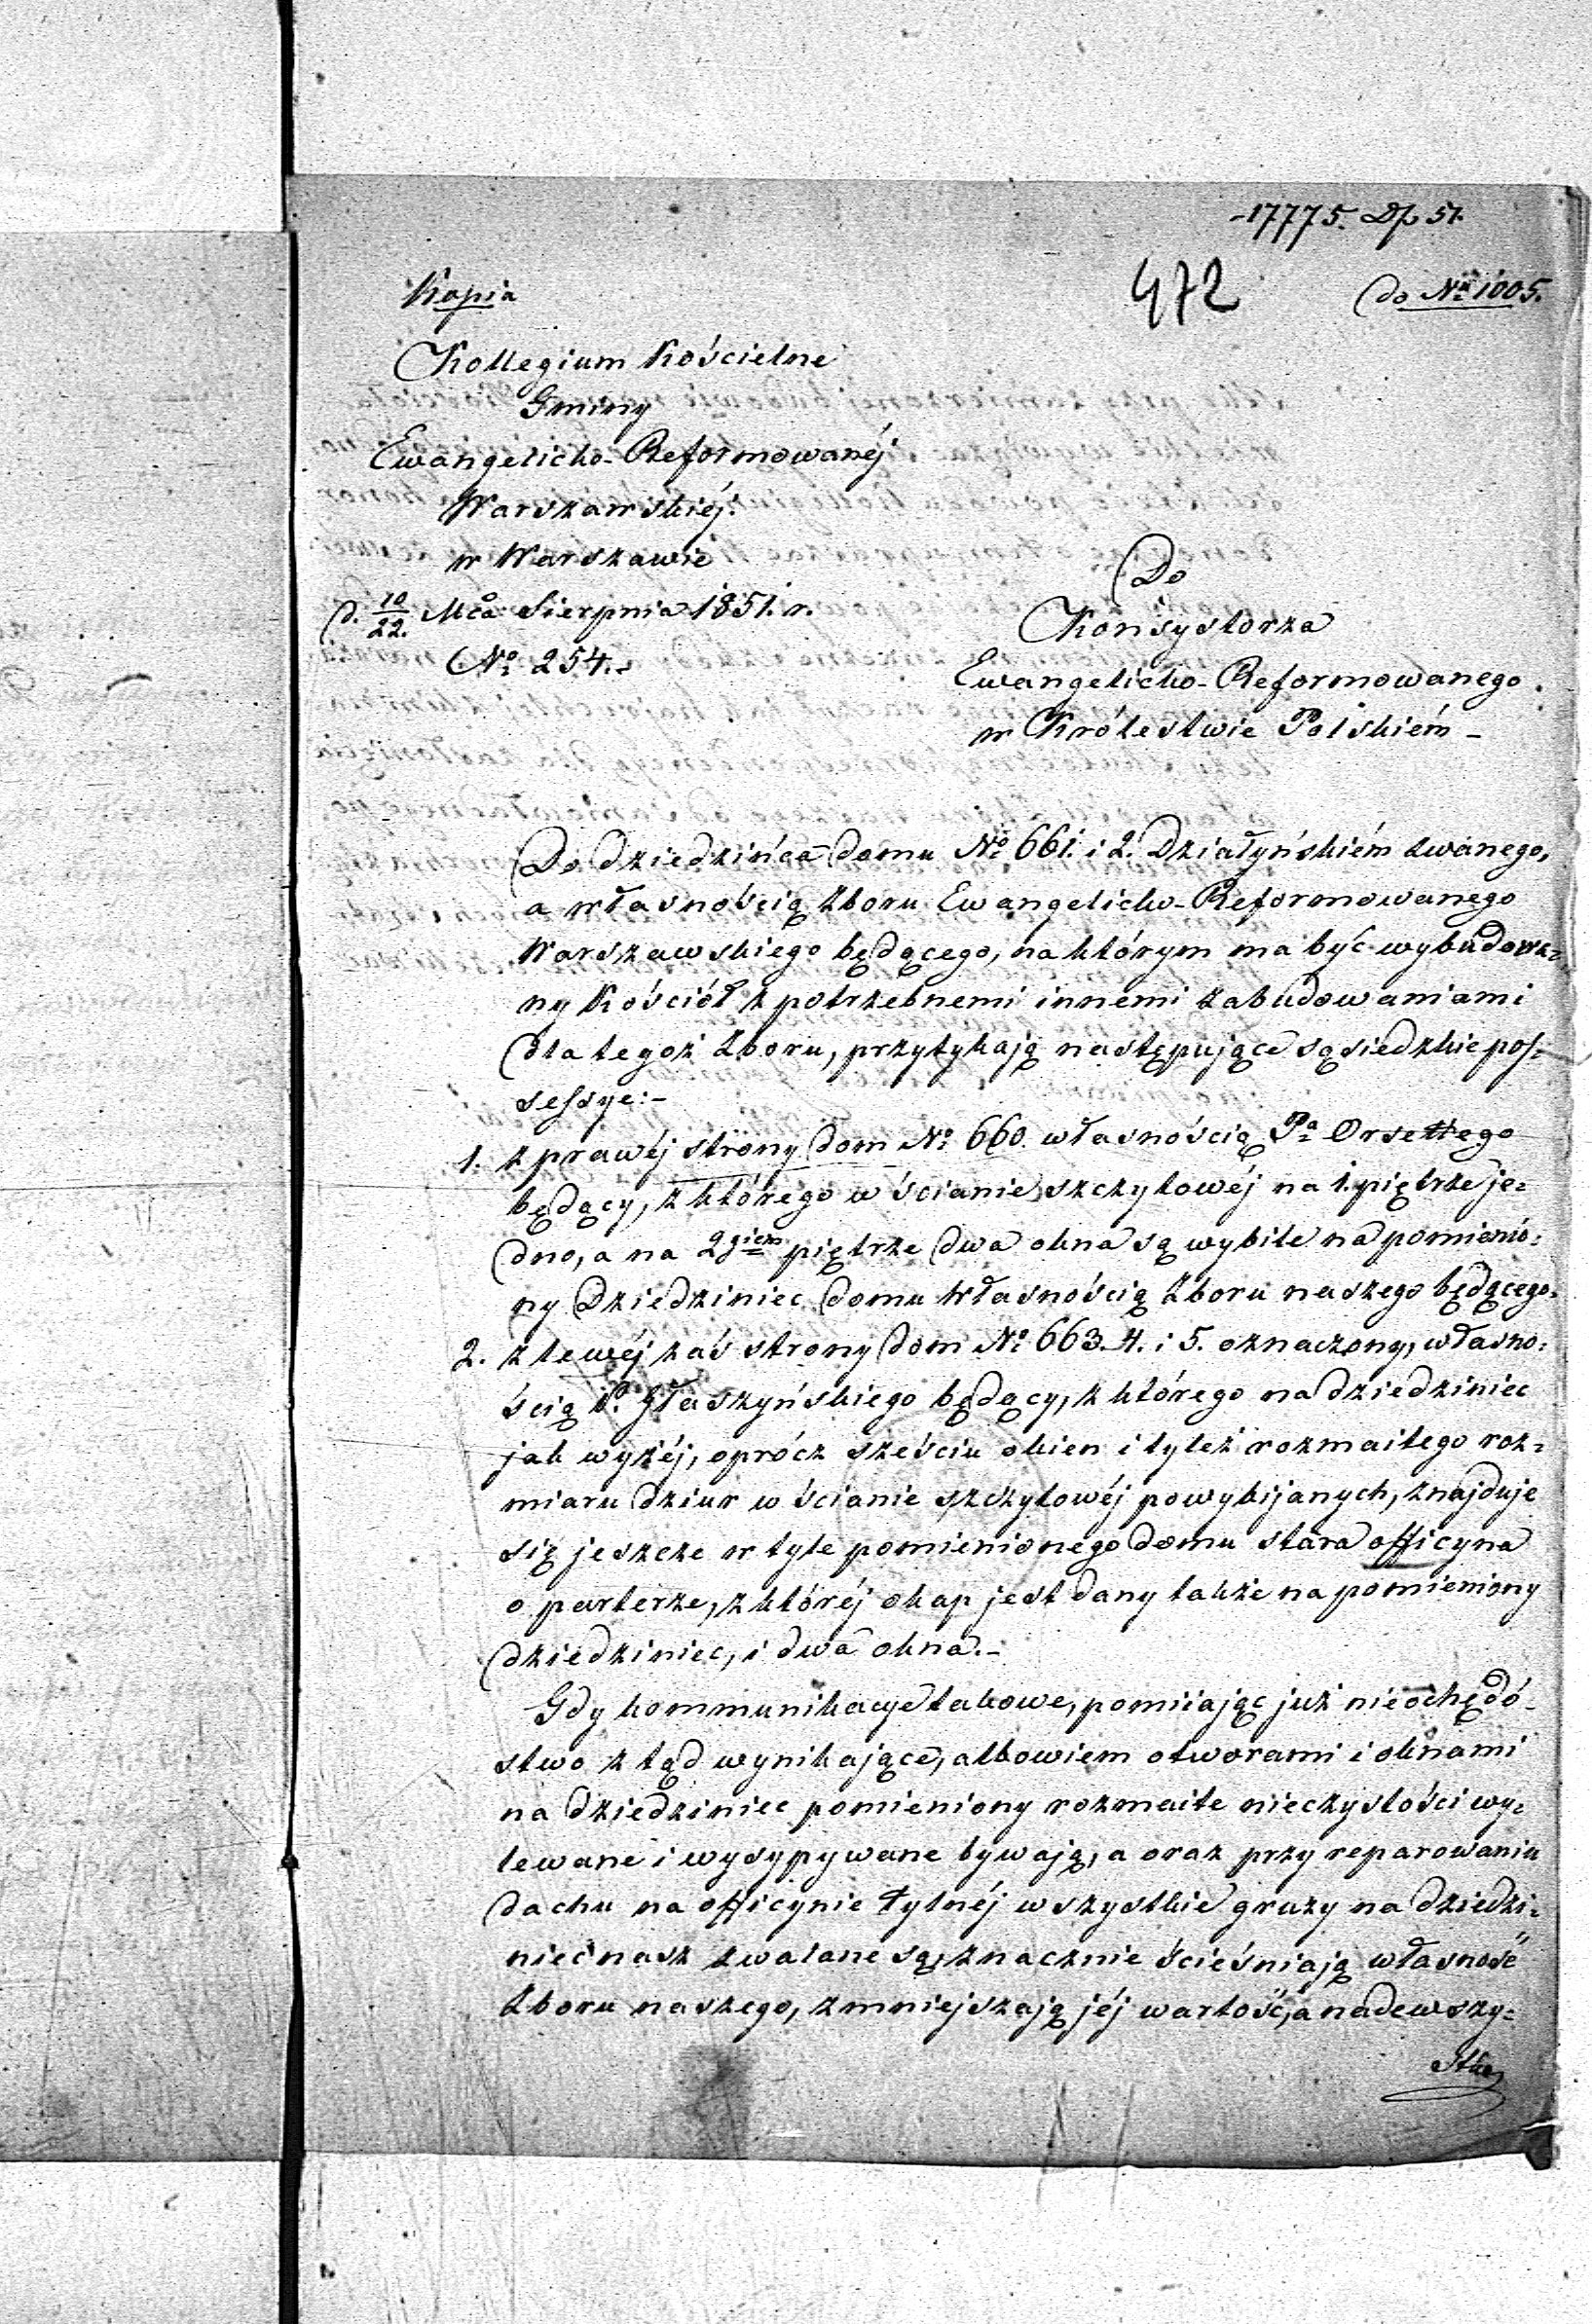 17775. Dp 51.
472
do Nru 1005.
Kopia
Kollegium Kościelne
Gminy
Ewangelicko-Reformowanéj
Warszawskiéj.
w Warszawie
d. 10/22. Mca Sierpnia 1851. r.
No 254.
Do
Konsystorza
Ewangelicko-Reformowanego
w Królestwie Polskiém -
Do dziedzińca domu No 661. i 2. Działyńskiém zwanego,
a własnością Zboru Ewangelicko-Reformowanego
Warszawskiego będącego, na którym ma być wybudowa=
ny Kościół z potrzebnemi innemi zabudowaniami
dla tegoż Zboru, przytykają następujące sąsiedzkie pos=
sessye:-
1. z prawéj strony dom No 660. własnością Pa Orsettego
będący, z którego w ścianie szczytowéj na 1. piętrze je=
dno, a na 2giem piętrze dwa okna są wybite na pomienio=
ny Dziedziniec domu własnością Zboru naszego będącego.
2. z lewéj zaś strony dom No 663. 4. i 5. oznaczony, własno=
ścią P. Głaszyńskiego będący, z którego na dziedziniec
jak wyżéj, oprócz sześciu okien i tyleż rozmaitego roz=
miaru dziur w ścianie szczytowéj powybijanych, znajduje
się jeszcze w tyle pomienionego domu stara officyna
o parterze, z któréj okap jest dany także na pomieniony
dziedziniec, i dwa okna.-
Gdy kommunikacye takowe, pomiiając już nieochędó-
stwo z tąd wynikające, albowiem otworami i oknami
na dziedziniec pomieniony rozmaite nieczystości wy=
lewane i wysypywane bywają, a oraz przy reparowaniu
dachu na officynie tylnéj wszystkie gruzy na dziedzi=
niec nasz zwalane są, znacznie ścieśniają własność
Zboru naszego, zmniejszają jéj wartość, a nadewszy=
stko